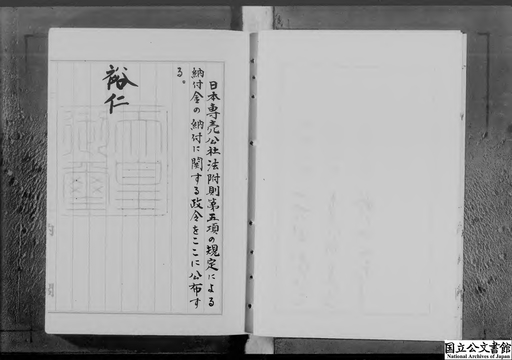 日本専売公社法附則第五項の規定による
納付金の納付に関する政令をここに公布す
る。
裕仁
天皇
御璽
国立公文書館
National Archives of Japan